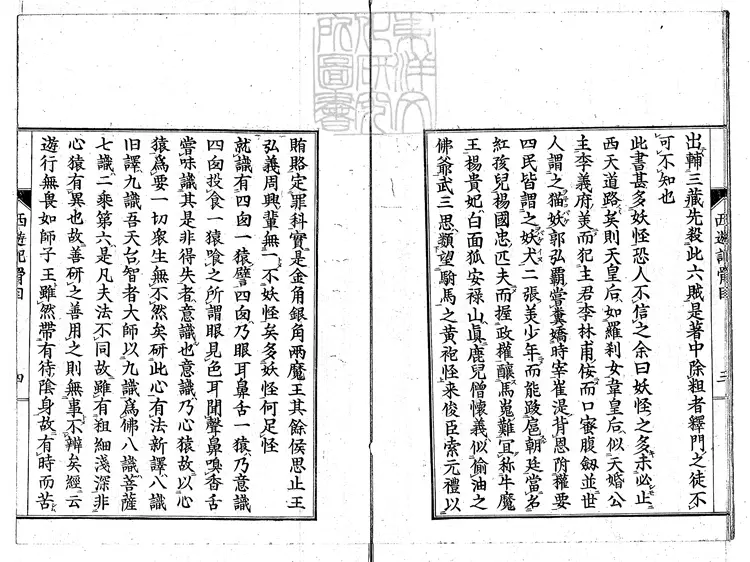 出輔三藏先殺此六賊是著中除粗者釋門之徒不
可不知也
此書甚多妖怪恐人不信之余曰妖怪之多未必止
西天道路矣則天皇后如羅刹女韋皇后似天婚公
主李義府美而犯主君李林甫佞而口蜜腹劔並世
人謂之猫妖郭弘霸嘗糞嬌時宰崔湜背恩附權要
四民皆謂之妖犬二張美少年而能跋扈朝廷當名
紅孩兒楊國忠匹夫而握政權釀馬嵬難冝称牛魔
王楊貴妃白面狐安祿山眞鹿兒僧懷義似偷油之
佛爺武三思頮望駙馬之黄袍怪来俊臣索元禮以
西遊記骨目 三
賄賂定罪科實是金角銀角兩魔王其餘侯思止王
弘義周興輩無一不妖怪矣多妖怪何足怪
就識有四囱一猿譬四囱乃眼耳鼻舌一猿乃意識
四囱投食一猿喰之所謂眼見色耳聞聲鼻嗅香舌
嘗味識其是非得失者意識也意識乃心猿故以心
猿爲要一切衆生無不然矣研此心有法新譯八識
旧譯九識吾天台智者大師以九識爲佛八識菩薩
七識二乘第六是凡夫法不同故雖有粗細淺深非
心猿有異也故善研之善用之則無事不辨矣經云
遊行無畏如師子王雖然帶有待陰身故有時而苦
西遊記骨目 四